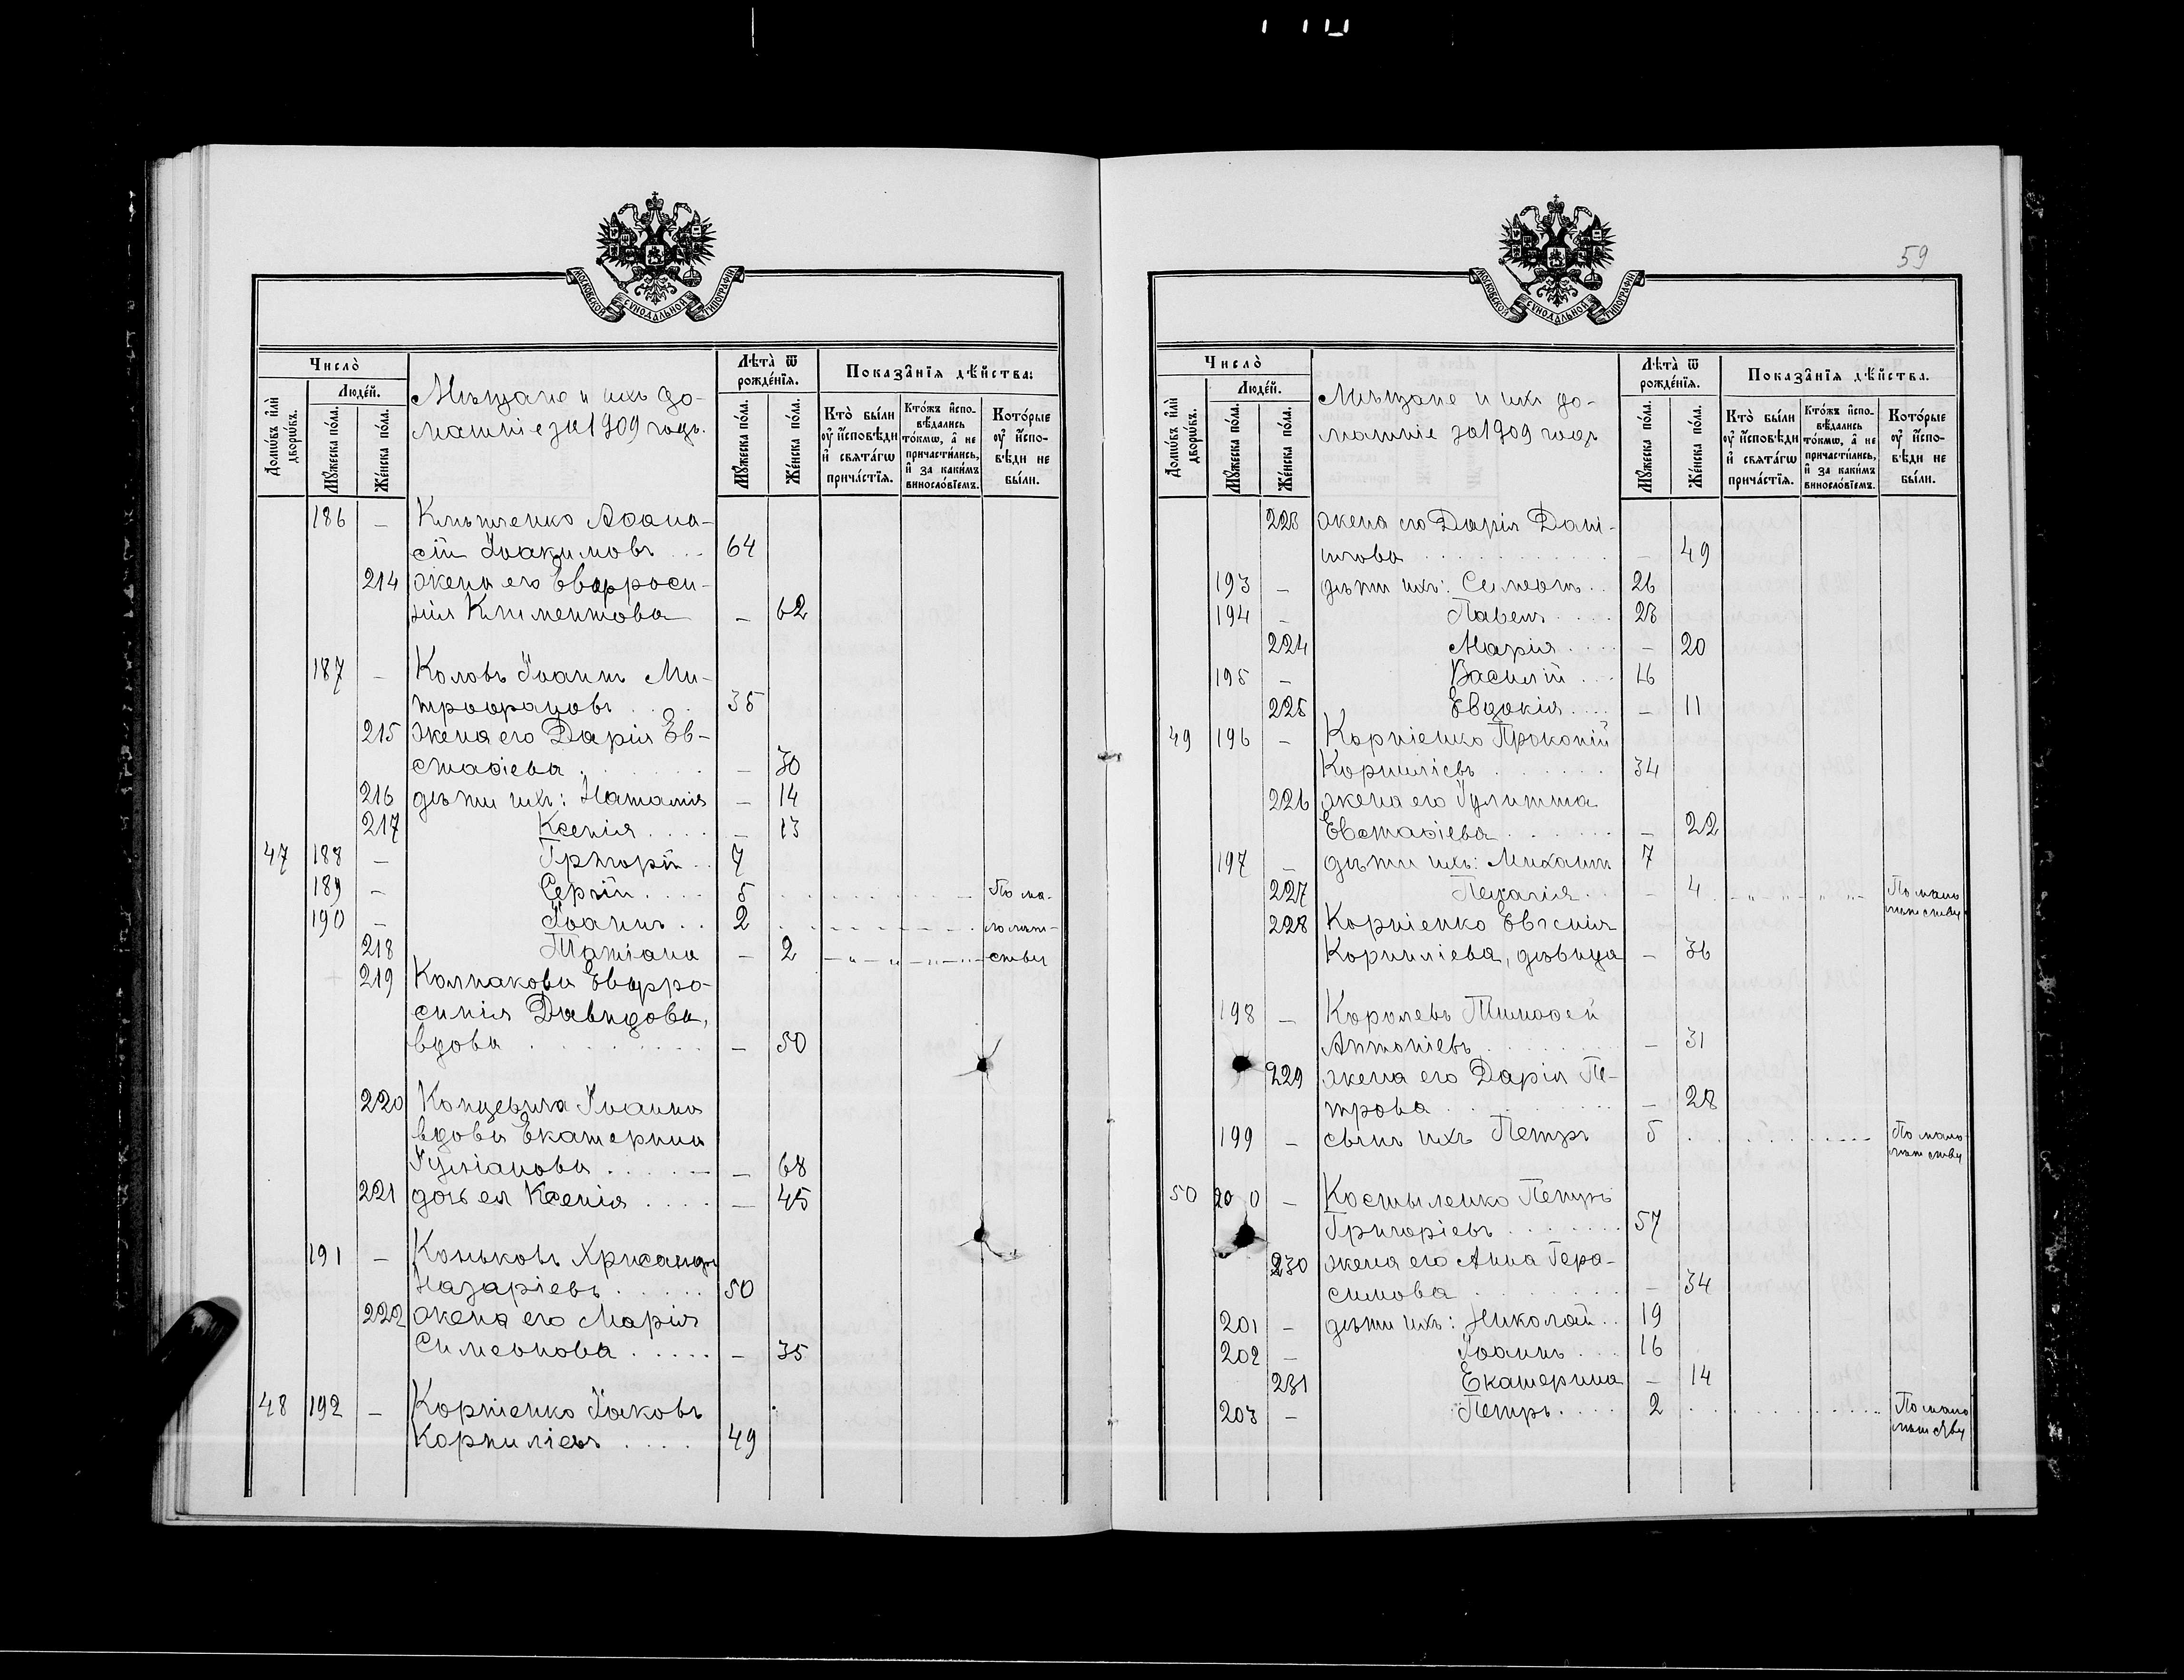 МОСКОВСКОЙ СУНОДАЛЬНОЙ ТИПОГРАФІИ
Число̀
Домѡ́въ и҆лѝ дворѡ́въ.
Люде́й.
Мꙋ́жеска по́ла.
Же́нска по́ла.
Мѣщане и ихъ до-
машніе за 1909 годъ.
Лѣ́та ѿ рожде́нїѧ.
Мꙋ́жеска по́ла.
Же́нска по́ла.
Показа̂нїѧ дѣ́йства:
Кто̀ бы́ли оу҆ и҆́сповѣди и҆ свѧта́гѡ прича́стїѧ.
Кто́жъ и҆спо-вѣ́дались то́кмѡ, а҆ не причасти́лись, и҆ за каки́мъ винносло́вїемъ.
Кото́рые оу҆ и҆́спо-вѣди не бы́ли.
186 – Клименко Аѳана-
сій Іоакимовъ ... 64
214 жена его Евфроси-
нія Климентова – 62
187 – Коловъ Іоаннъ Ми-
трофановъ .... 35
215 жена его Дарія Ев-
стаѳіева ....... – 30
216 дѣти ихъ: Наталія – 14
217 Ксенія .... – 13
47 188 – Григорій .. 7
189 – Сергій .... 5 По ма-
190 – Іоаннъ .. 2 лолѣт-
218 Татіана – 2 ству
219 Колпакова Евфро-
синія Давидова,
вдова ......... – 50
220 Концевича Іоанна
вдова Екатерина
Іуліанова ..... – 68
221 дочь ея Ксенія .... – 45
191 – Коньковъ Хрисанфъ
Назаріевъ ..... 50
222 жена его Марія
Симеонова ..... – 35
48 192 – Корніенко Іаковъ
Корниліевъ .... 49
59
МОСКОВСКОЙ СУНОДАЛЬНОЙ ТИПОГРАФІИ
Число̀
Домѡ́въ и҆лѝ дворѡ́въ.
Люде́й.
Мꙋ́жеска по́ла.
Же́нска по́ла.
Мѣщане и ихъ до-
машніе за 1909 годъ
Лѣ́та ѿ рожде́нїѧ.
Мꙋ́жеска по́ла.
Же́нска по́ла.
Показа̂нїѧ дѣ́йства.
Кто̀ бы́ли оу҆ и҆́сповѣди и҆ свѧта́гѡ прича́стїѧ.
Кто́жъ и҆спо-вѣ́дались то́кмѡ, а҆ не причасти́лись, и҆ за каки́мъ винносло́вїемъ.
Кото́рые оу҆ и҆́спо-вѣди не бы́ли.
223 жена его Дарія Дані-
илова ........... – 49
193 – дѣти ихъ: Симеонъ .. 26
194 – Павелъ .... 23
224 Марія .... – 20
195 – Василій ... 16
225 Евдокія .... – 11
49 196 – Корніенко Прокопій
Корниліевъ ....... 34
226 жена его Іулитта
Евстаѳіева ....... – 22
197 – дѣти ихъ: Михаилъ 7
227 Пелагія .. – 4 По мало
лѣтству
228 Корніенко Евгенія
Корниліева, дѣвица – 36
198 – Королевъ Тимоѳей
Антоніевъ ........ – 31
229 жена его Дарія Пе-
трова .......... – 28
199 – сынъ ихъ Петръ 5 По мало
лѣтству
50 200 – Костыленко Петръ
Григоріевъ ........ 57
230 жена его Анна Гера-
симова ......... – 34
201 – дѣти ихъ: Николай .. 19
202 – Іоаннъ ... 16
231 Екатерина – 14
203 – Петръ .... 2 По мало
лѣтству